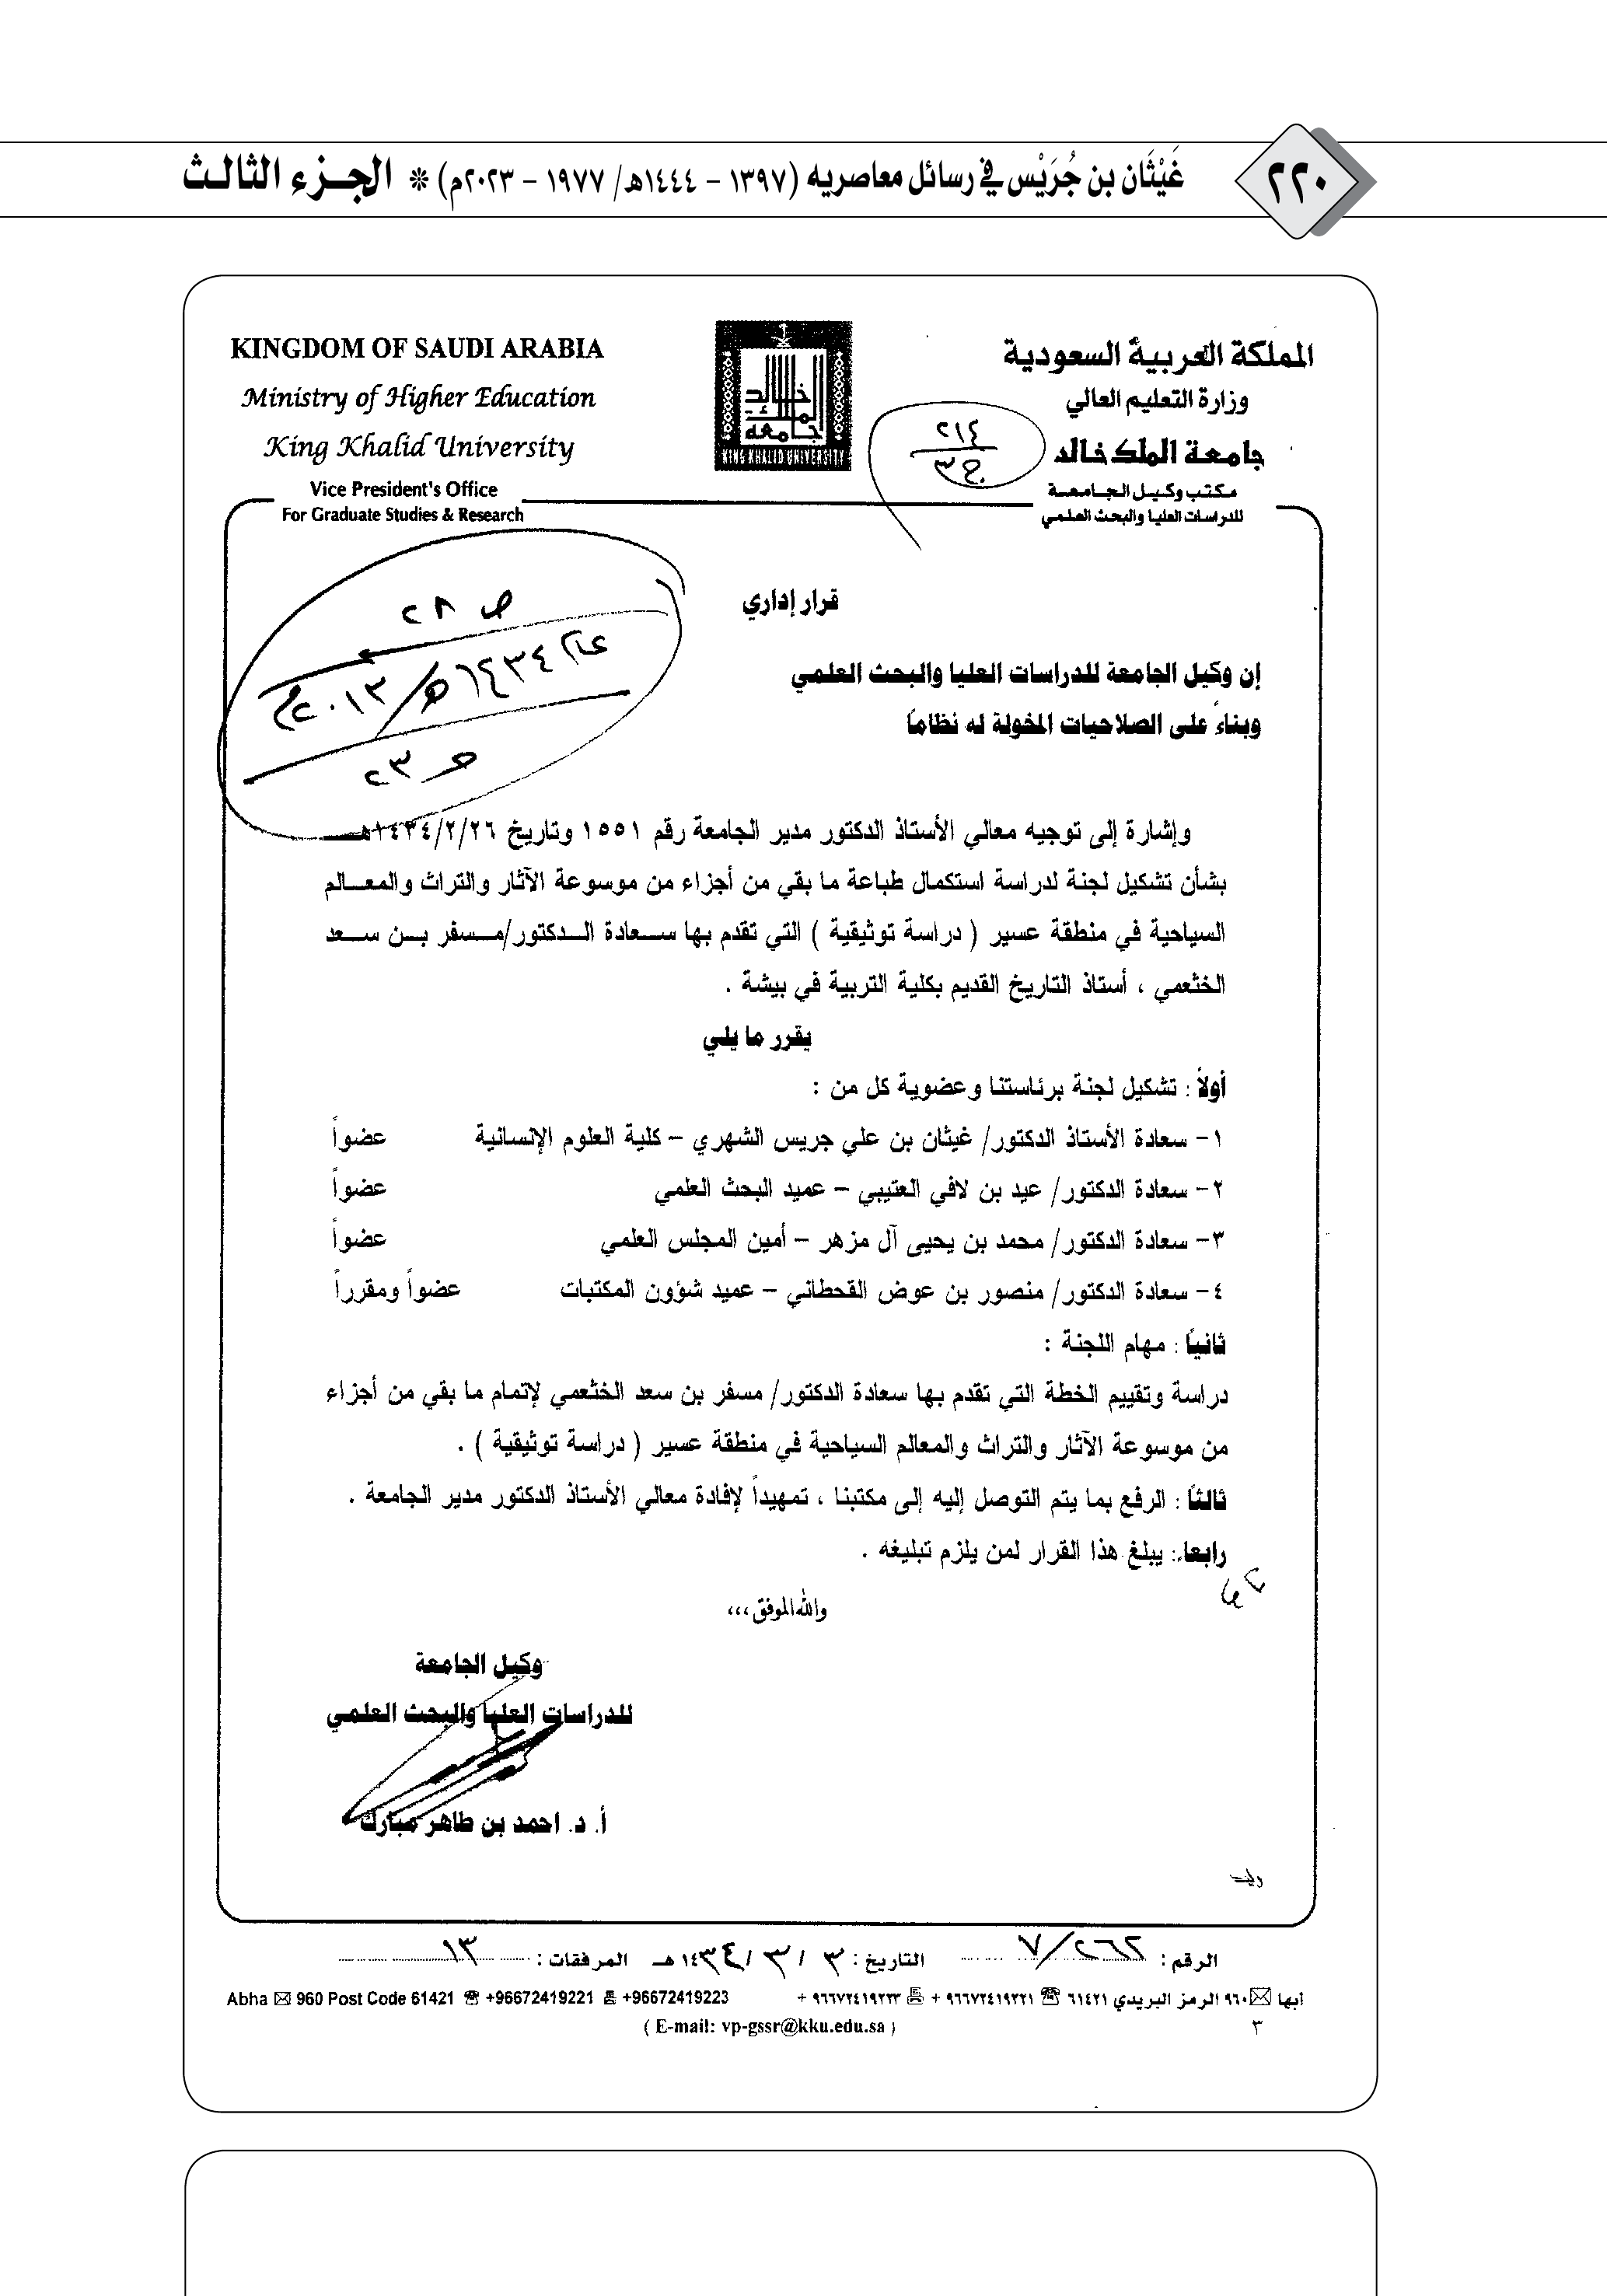 غَيْثَان بن جُرَيْس في رسائل معاصريه (١٣٩٧ - ١٤٤٤هـ/ ١٩٧٧ - ٢٠٢٣م) * الجزء الثالث
٢٢٠
المملكة العربية السعودية
وزارة التعليم العالي
جامعة الملك خالد
مكتب وكيل الجامعة
للدراسات العليا والبحث العلمي
KINGDOM OF SAUDI ARABIA
Ministry of Higher Education
King Khalid University
Vice President's Office
For Graduate Studies & Research
جامعة الملك خالد
KING KHALID UNIVERSITY
٢١٤
ج ٣
ص ٢٨
عام ١٤٣٤هـ / ٢٠١٣م
هـ ٢٣
قرار إداري
إن وكيل الجامعة للدراسات العليا والبحث العلمي
وبناءً على الصلاحيات المخولة له نظاماً
وإشارة إلى توجيه معالي الأستاذ الدكتور مدير الجامعة رقم ١٥٥١ وتاريخ ١٤٣٤/٢/٢٦هـ
بشأن تشكيل لجنة لدراسة استكمال طباعة ما بقي من أجزاء من موسوعة الآثار والتراث والمعالم
السياحية في منطقة عسير ( دراسة توثيقية ) التي تقدم بها سعادة الدكتور/مسفر بن سعد
الخثعمي ، أستاذ التاريخ القديم بكلية التربية في بيشة .
يقرر ما يلي
أولاً : تشكيل لجنة برئاستنا وعضوية كل من :
١- سعادة الأستاذ الدكتور/ غيثان بن علي جريس الشهري – كلية العلوم الإنسانية عضواً
٢- سعادة الدكتور/ عيد بن لافي العتيبي – عميد البحث العلمي عضواً
٣- سعادة الدكتور/ محمد بن يحيى آل مزهر – أمين المجلس العلمي عضواً
٤- سعادة الدكتور/ منصور بن عوض القحطاني – عميد شؤون المكتبات عضواً ومقرراً
ثانياً : مهام اللجنة :
دراسة وتقييم الخطة التي تقدم بها سعادة الدكتور/ مسفر بن سعد الخثعمي لإتمام ما بقي من أجزاء
من موسوعة الآثار والتراث والمعالم السياحية في منطقة عسير ( دراسة توثيقية ) .
ثالثاً : الرفع بما يتم التوصل إليه إلى مكتبنا ، تمهيداً لإفادة معالي الأستاذ الدكتور مدير الجامعة .
رابعاً: يبلغ هذا القرار لمن يلزم تبليغه .
والله الموفق ،،،
وكيل الجامعة
للدراسات العليا والبحث العلمي
أ. د. احمد بن طاهر مبارك
الرقم : ٧/٢٦٢ التاريخ : ٣ / ٣ / ١٤٣٤ هـ المرفقات : ١٣
أبها ٩٦٠ الرمز البريدي ٦١٤٢١ ٩٦٦٧٢٤١٩٢٢١ + ٩٦٦٧٢٤١٩٢٢٣ +
Abha 960 Post Code 61421 +96672419221 +96672419223
( E-mail: vp-gssr@kku.edu.sa )
٣